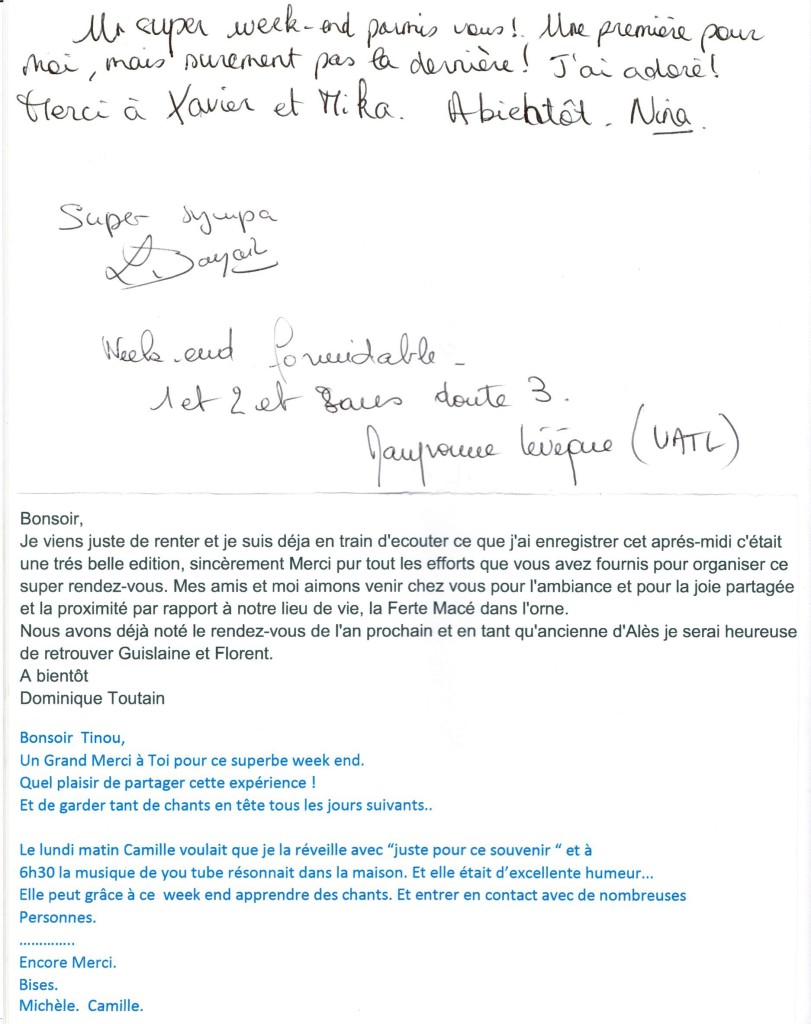 Un super week-end parmis vous! Une première pour
moi, mais surement pas la dernière! J'ai adoré!
Merci à Xavier et Mika. A bientôt. Nina.
Super sympa
Week-end formidable -
1 et 2 et sans doute 3.
Levêque (UATL)
Bonsoir,
Je viens juste de renter et je suis déja en train d'ecouter ce que j'ai enregistrer cet aprés-midi c'était
une trés belle edition, sincèrement Merci pur tout les efforts que vous avez fournis pour organiser ce
super rendez-vous. Mes amis et moi aimons venir chez vous pour l'ambiance et pour la joie partagée
et la proximité par rapport à notre lieu de vie, la Ferte Macé dans l'orne.
Nous avons déjà noté le rendez-vous de l'an prochain et en tant qu'ancienne d'Alès je serai heureuse
de retrouver Guislaine et Florent.
A bientôt
Dominique Toutain
Bonsoir Tinou,
Un Grand Merci à Toi pour ce superbe week end.
Quel plaisir de partager cette expérience !
Et de garder tant de chants en tête tous les jours suivants..
Le lundi matin Camille voulait que je la réveille avec “juste pour ce souvenir “ et à
6h30 la musique de you tube résonnait dans la maison. Et elle était d’excellente humeur...
Elle peut grâce à ce week end apprendre des chants. Et entrer en contact avec de nombreuses
Personnes.
..............
Encore Merci.
Bises.
Michèle. Camille.